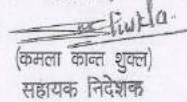 (कमला कान्त शुक्ल)
सहायक निदेशक